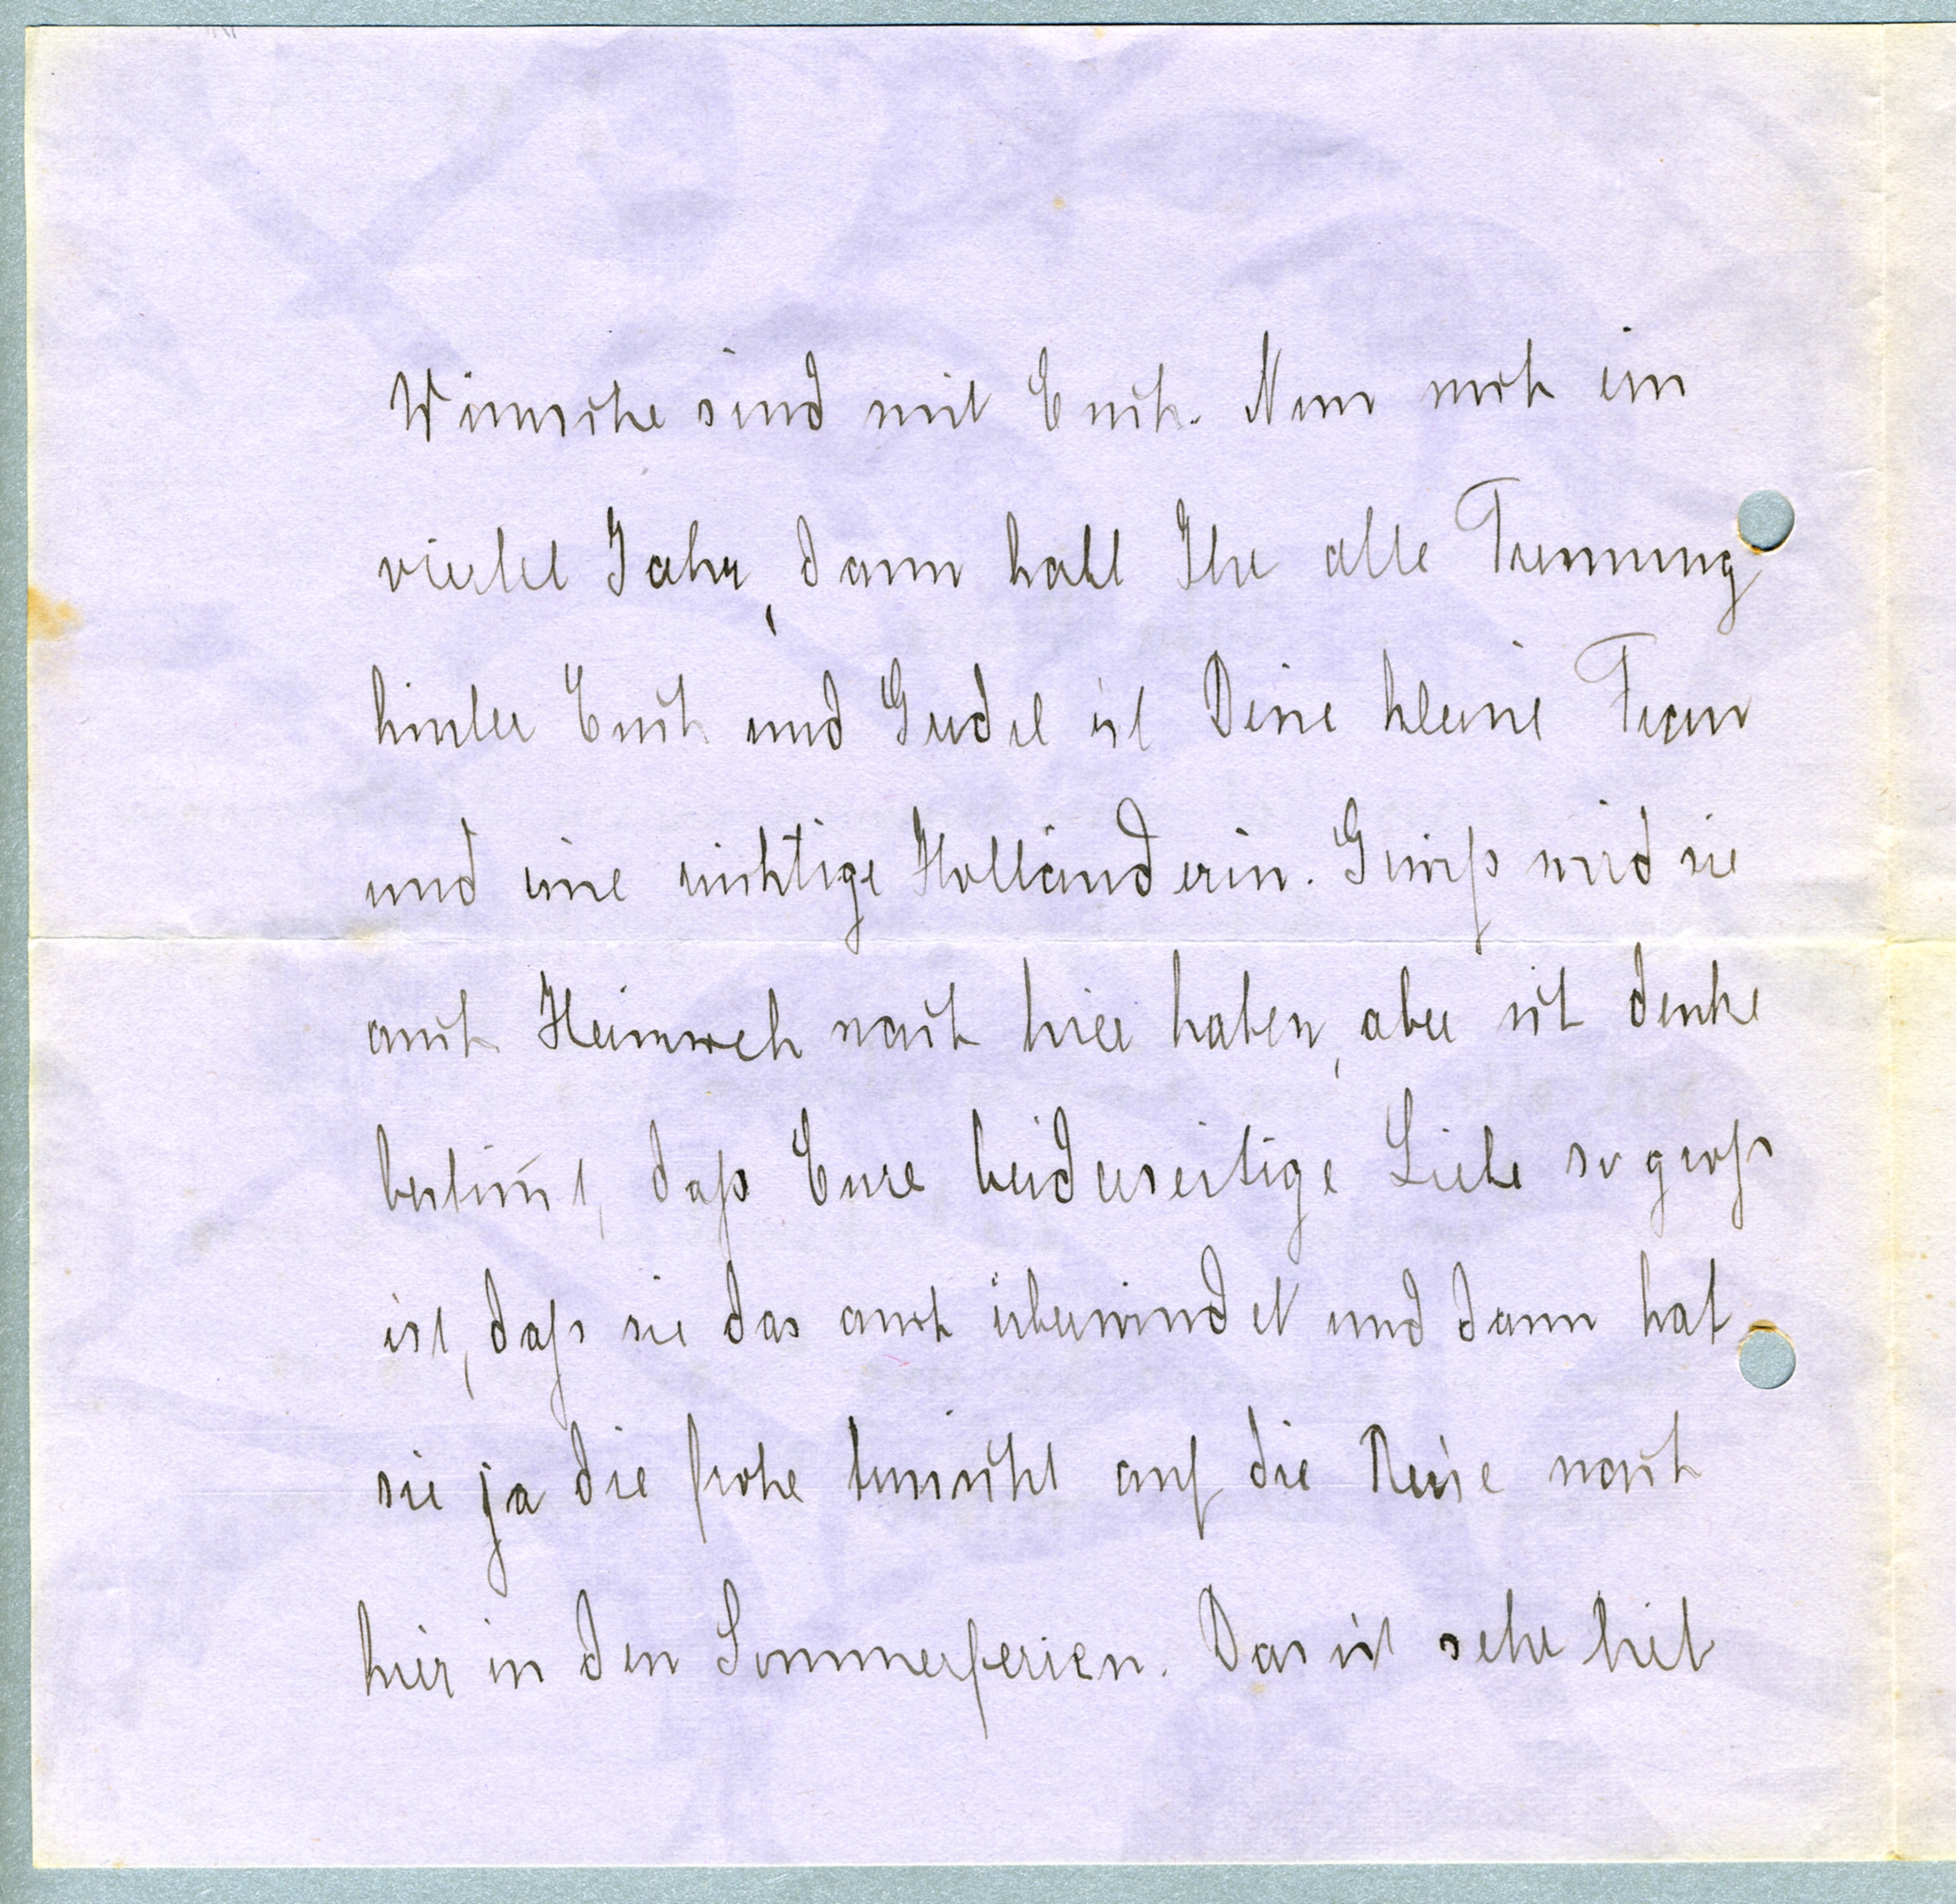 Wünsche sind mit Euch. Nur noch ein
viertel Jahr, dann habt Ihr alle Trennung
hinter Euch und Gudel ist Deine kleine Frau
und eine richtige Holländerin. Gewiß wird sie
auch Heimweh nach hier haben, aber ich denke
bestim̄t, daß Eure beiderseitige Liebe so groß
ist, daß sie das auch überwindet und dann hat
sie ja die frohe Aussicht auf die Reise nach
hier in den Sommerferien. Das ist sehr lieb